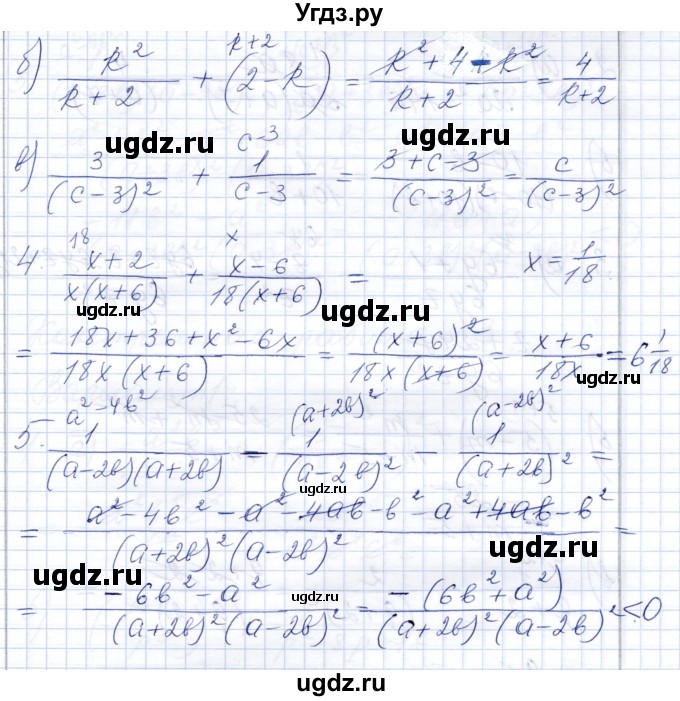 Угдз.ру
б) k²/(k+2) + (2-k)^(k+2) = (k²+4-k²)/(k+2) = 4/(k+2)
ugdz.ru
в) 3/(c-3)² + 1^(c-3)/(c-3) = (3+c-3)/(c-3)² = c/(c-3)²
ugdz.ru ugdz.ru
4. (x+2)^18/(x(x+6)) + (x-6)^x/(18(x+6)) = x = 1/18
ugdz.ru ugdz.ru
= (18x+36+x²-6x)/(18x(x+6)) = (x+6)²/(18x(x+6)) = (x+6)/(18x) = 6 1/18
ugdz.ru
a²-4b² (a+2b)² (a-2b)²
5. 1/((a-2b)(a+2b)) - 1/(a-2b)² - 1/(a+2b)² =
ugdz.ru
= (a²-4b²-a²-4ab-b²-a²+4ab-b²)/((a+2b)²(a-2b)²) =
ugdz.ru ugdz.ru
ugdz.ru
= (-6b²-a²)/((a+2b)²(a-2b)²) = -(6b²+a²)/((a+2b)²(a-2b)²) < 0
ugdz.ru ugdz.ru
ugdz.ru